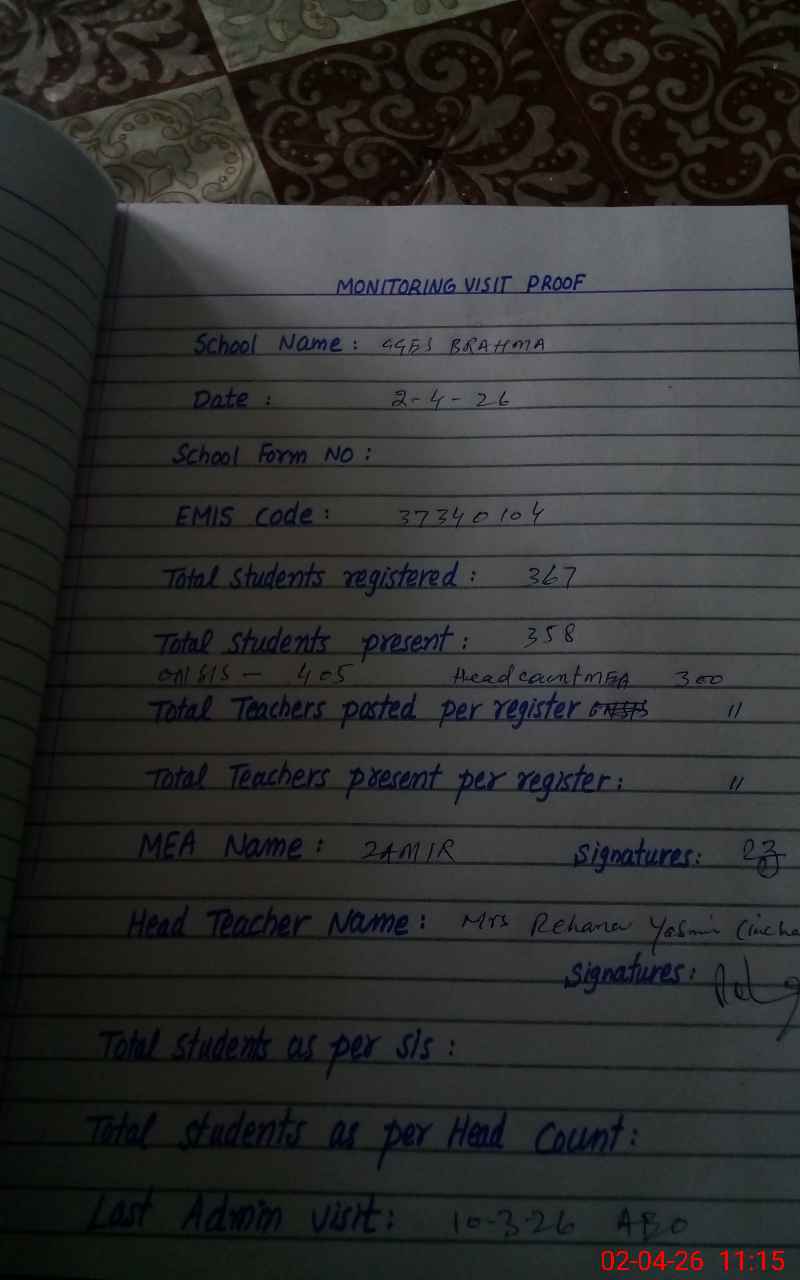 MONITORING VISIT PROOF
School Name : GGES BRAHMA
Date : 2-4-26
School Form NO :
EMIS Code : 37340104
Total Students registered : 367
Total Students present : 358
ON SIS - 405 Head count MEA 300
Total Teachers posted per register 11
Total Teachers present per register : 11
MEA Name : ZAMIR Signatures :
Head Teacher Name : Mrs Rehana Yasmin
Signatures :
Total students as per sis :
Total students as per Head Count :
Last Admin visit : 10-3-26 AEO
02-04-26 11:15